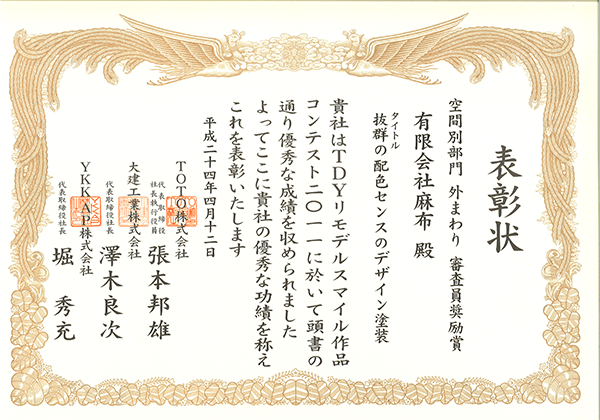 表彰状
空間別部門 外まわり 審査員奨励賞
有限会社麻布 殿
タイトル
抜群の配色センスのデザイン塗装
貴社はTDYリモデルスマイル作品
コンテスト二〇一一に於いて頭書の
通り優秀な成績を収められました
よってここに貴社の優秀な功績を称え
これを表彰いたします
平成二十四年四月十二日
TOTO株式会社
代表取締役
社長執行役員
張本邦雄
大建工業株式会社
代表取締役社長
澤木良次
YKKAP株式会社
代表取締役社長
堀秀充